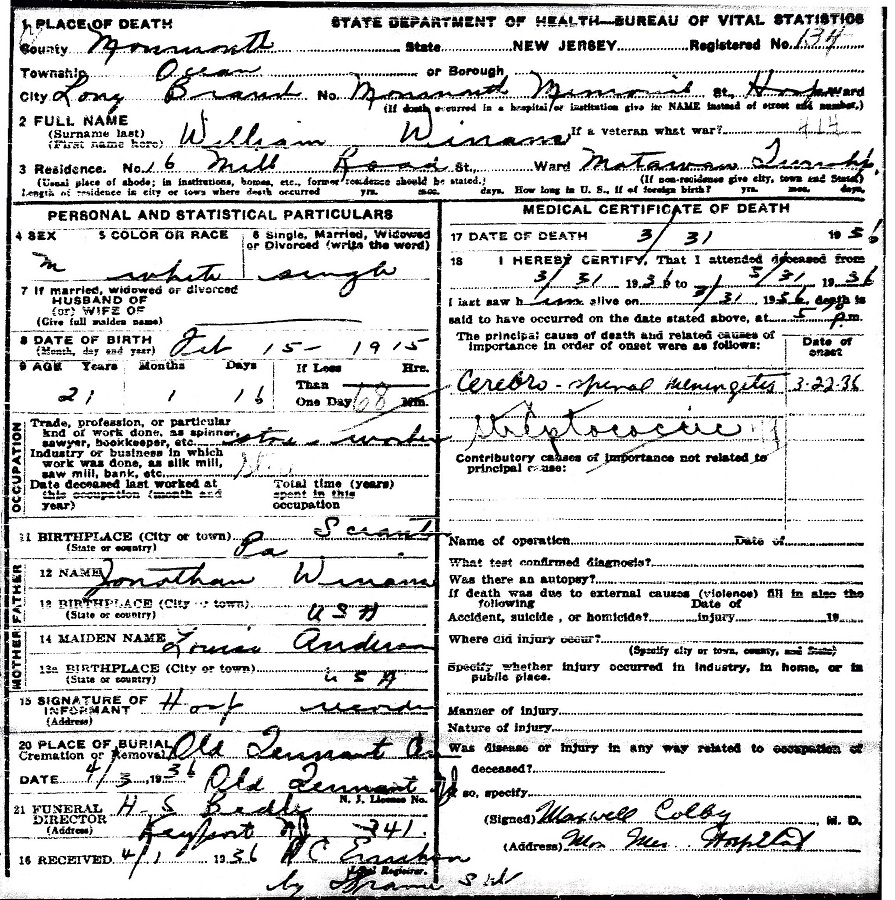 1 PLACE OF DEATH STATE DEPARTMENT OF HEALTH—BUREAU OF VITAL STATISTICS
County Monmouth State NEW JERSEY Registered No. 134
Township Ocean or Borough
City Long Branch No. Monmouth Memorial St., Hosp Ward
(If death occurred in a hospital/or institution give its NAME instead of street and number.)
2 FULL NAME William Winans If a veteran what war?
(Surname last)
(First name here)
3 Residence. No. 16 Mill Road St., Ward Matawan Township
(Usual place of abode; in institutions, homes, etc., former residence should be stated.) (If non-residence give city, town and State)
Length of residence in city or town where death occurred yrs. mos. days. How long in U. S., if of foreign birth? yrs. mos. days.
PERSONAL AND STATISTICAL PARTICULARS
4 SEX 5 COLOR OR RACE 6 Single, Married, Widowed
or Divorced (write the word)
M white single
7 If married, widowed or divorced
HUSBAND OF
(or) WIFE OF
(Give full maiden name)
8 DATE OF BIRTH Feb 15 - 1915
(Month, day and year)
9 AGE Years Months Days If Less Hrs.
Than
21 1 16 One Day Min.
OCCUPATION
Trade, profession, or particular
kind of work done, as spinner,
sawyer, bookkeeper, etc. store - worker
Industry or business in which
work was done, as silk mill,
saw mill, bank, etc.
Date deceased last worked at Total time (years)
this occupation (month and spent in this
year) occupation
11 BIRTHPLACE (City or town) Scrant
(State or country) Pa
FATHER
12 NAME Jonathan Winans
13 BIRTHPLACE (City or town)
(State or country) USA
MOTHER
14 MAIDEN NAME Louise Anderson
13a BIRTHPLACE (City or town)
(State or country) USA
15 SIGNATURE OF Hosp records
INFORMANT
(Address)
20 PLACE OF BURIAL Old Tennant
Cremation or Removal
DATE 4/3, 1936 Old Tennant NJ
N. J. License No.
21 FUNERAL H. S. Bedle
DIRECTOR
(Address) Keyport NJ 341.
16 RECEIVED 4/1 1936
Local Registrar.
by
MEDICAL CERTIFICATE OF DEATH
17 DATE OF DEATH 3/31 1936
18 I HEREBY CERTIFY, That I attended deceased from
3/31 1936 to 3/31 1936
I last saw him alive on 3/31 1936, death is
said to have occurred on the date stated above, at 5 p.m.
The principal cause of death and related causes of
importance in order of onset were as follows:
Date of
onset
Cerebro-spinal meningitis 3-22-36
Streptococcic
Contributory causes of importance not related to
principal cause:
Name of operation Date of
What test confirmed diagnosis?
Was there an autopsy?
If death was due to external causes (violence) fill in also the
following Date of
Accident, suicide, or homicide? injury 19
Where did injury occur?
(Specify city or town, county, and State)
Specify whether injury occurred in industry, in home, or in
public place.
Manner of injury
Nature of injury
Was disease or injury in any way related to occupation of
deceased?
If so, specify
(Signed) Maxwell Colby M. D.
(Address) Mon Mem. Hospital